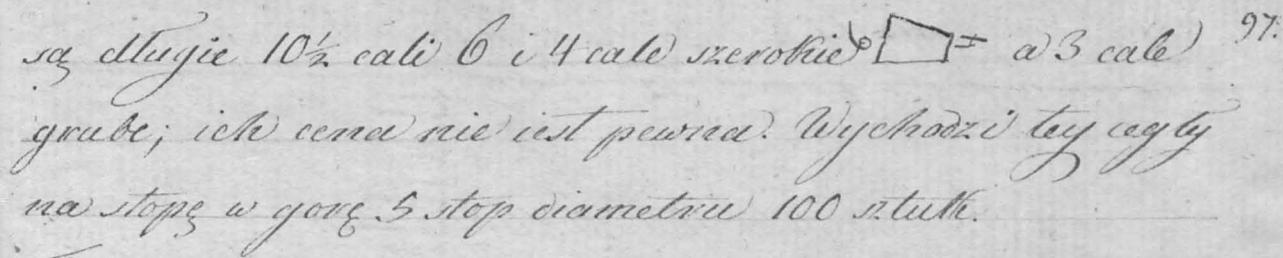 są długie 10½ cali 6 i 4 cale szerokie 6 = a 3 cale 97.
grube; ich cena nie iest pewna. Wychodzi tey cegły
na stopę w gorę 5 stop diametru 100 sztuk.